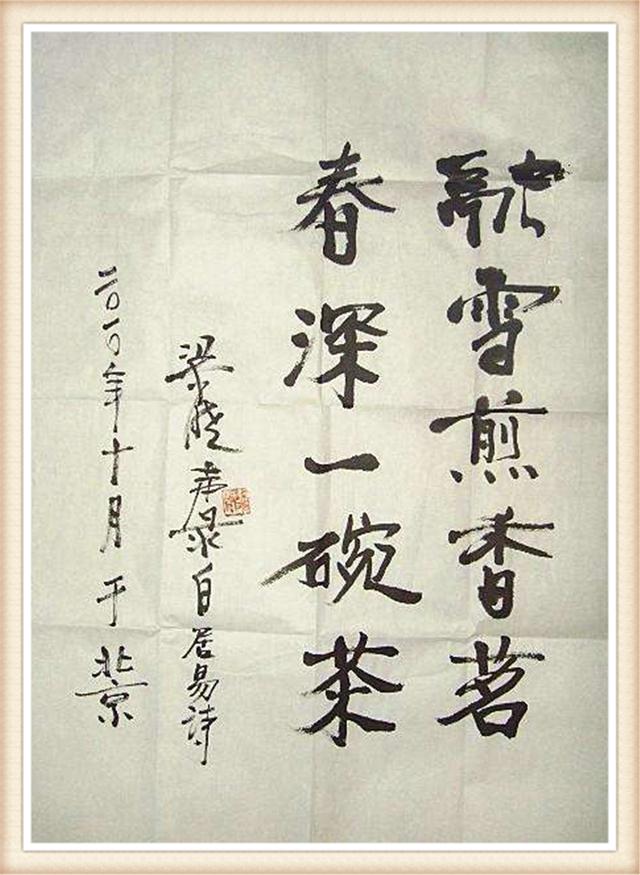 融雪煎香茗
春深一碗茶
梁晓声录白居易诗
二〇一〇年十月于北京